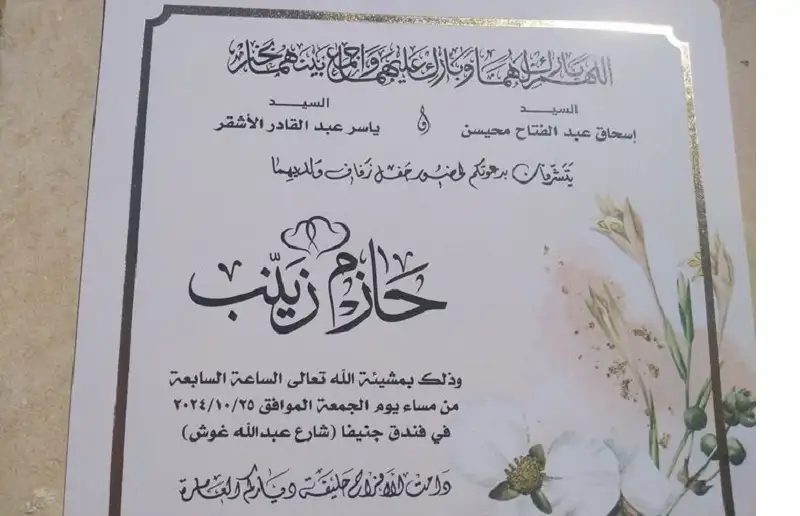 اللهم بارك لهما وبارك عليهما واجمع بينهما بخير
السيد
إسحاق عبد الفتاح محيسن
و
السيد
ياسر عبد القادر الأشقر
يتشرفان بدعوتكم لحضور حفل زفاف ولديهما
حازم زينب
وذلك بمشيئة الله تعالى الساعة السابعة
من مساء يوم الجمعة الموافق ٢٠٢٤/١٠/٢٥
في فندق جنيفا (شارع عبدالله غوش)
دامت الأفراح حليفة دياركم العامرة